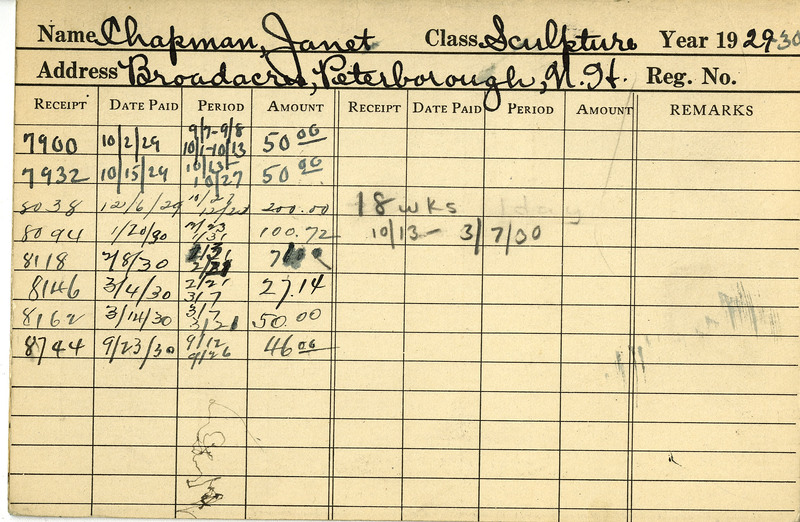 Name Chapman, Janet Class Sculpture Year 19 29-30
Address Broadacres, Peterborough, N.H. Reg. No.
RECEIPT DATE PAID PERIOD AMOUNT RECEIPT DATE PAID PERIOD AMOUNT REMARKS
9/7-9/8
7900 10/2/29 10/1-10/13 50 00
10/13-
7932 10/15/29 10/27 50 00
8038 12/6/29 200.00 18 wks
8094 1/20/30 1/31 100.72 10/13- 3/7/00
8118 2/8/30 2/21
2/21
8146 3/4/30 3/7 27.14
3/7
8162 3/14/30 3/21 50.00
9/12
8744 9/23/30 9/26 46 00